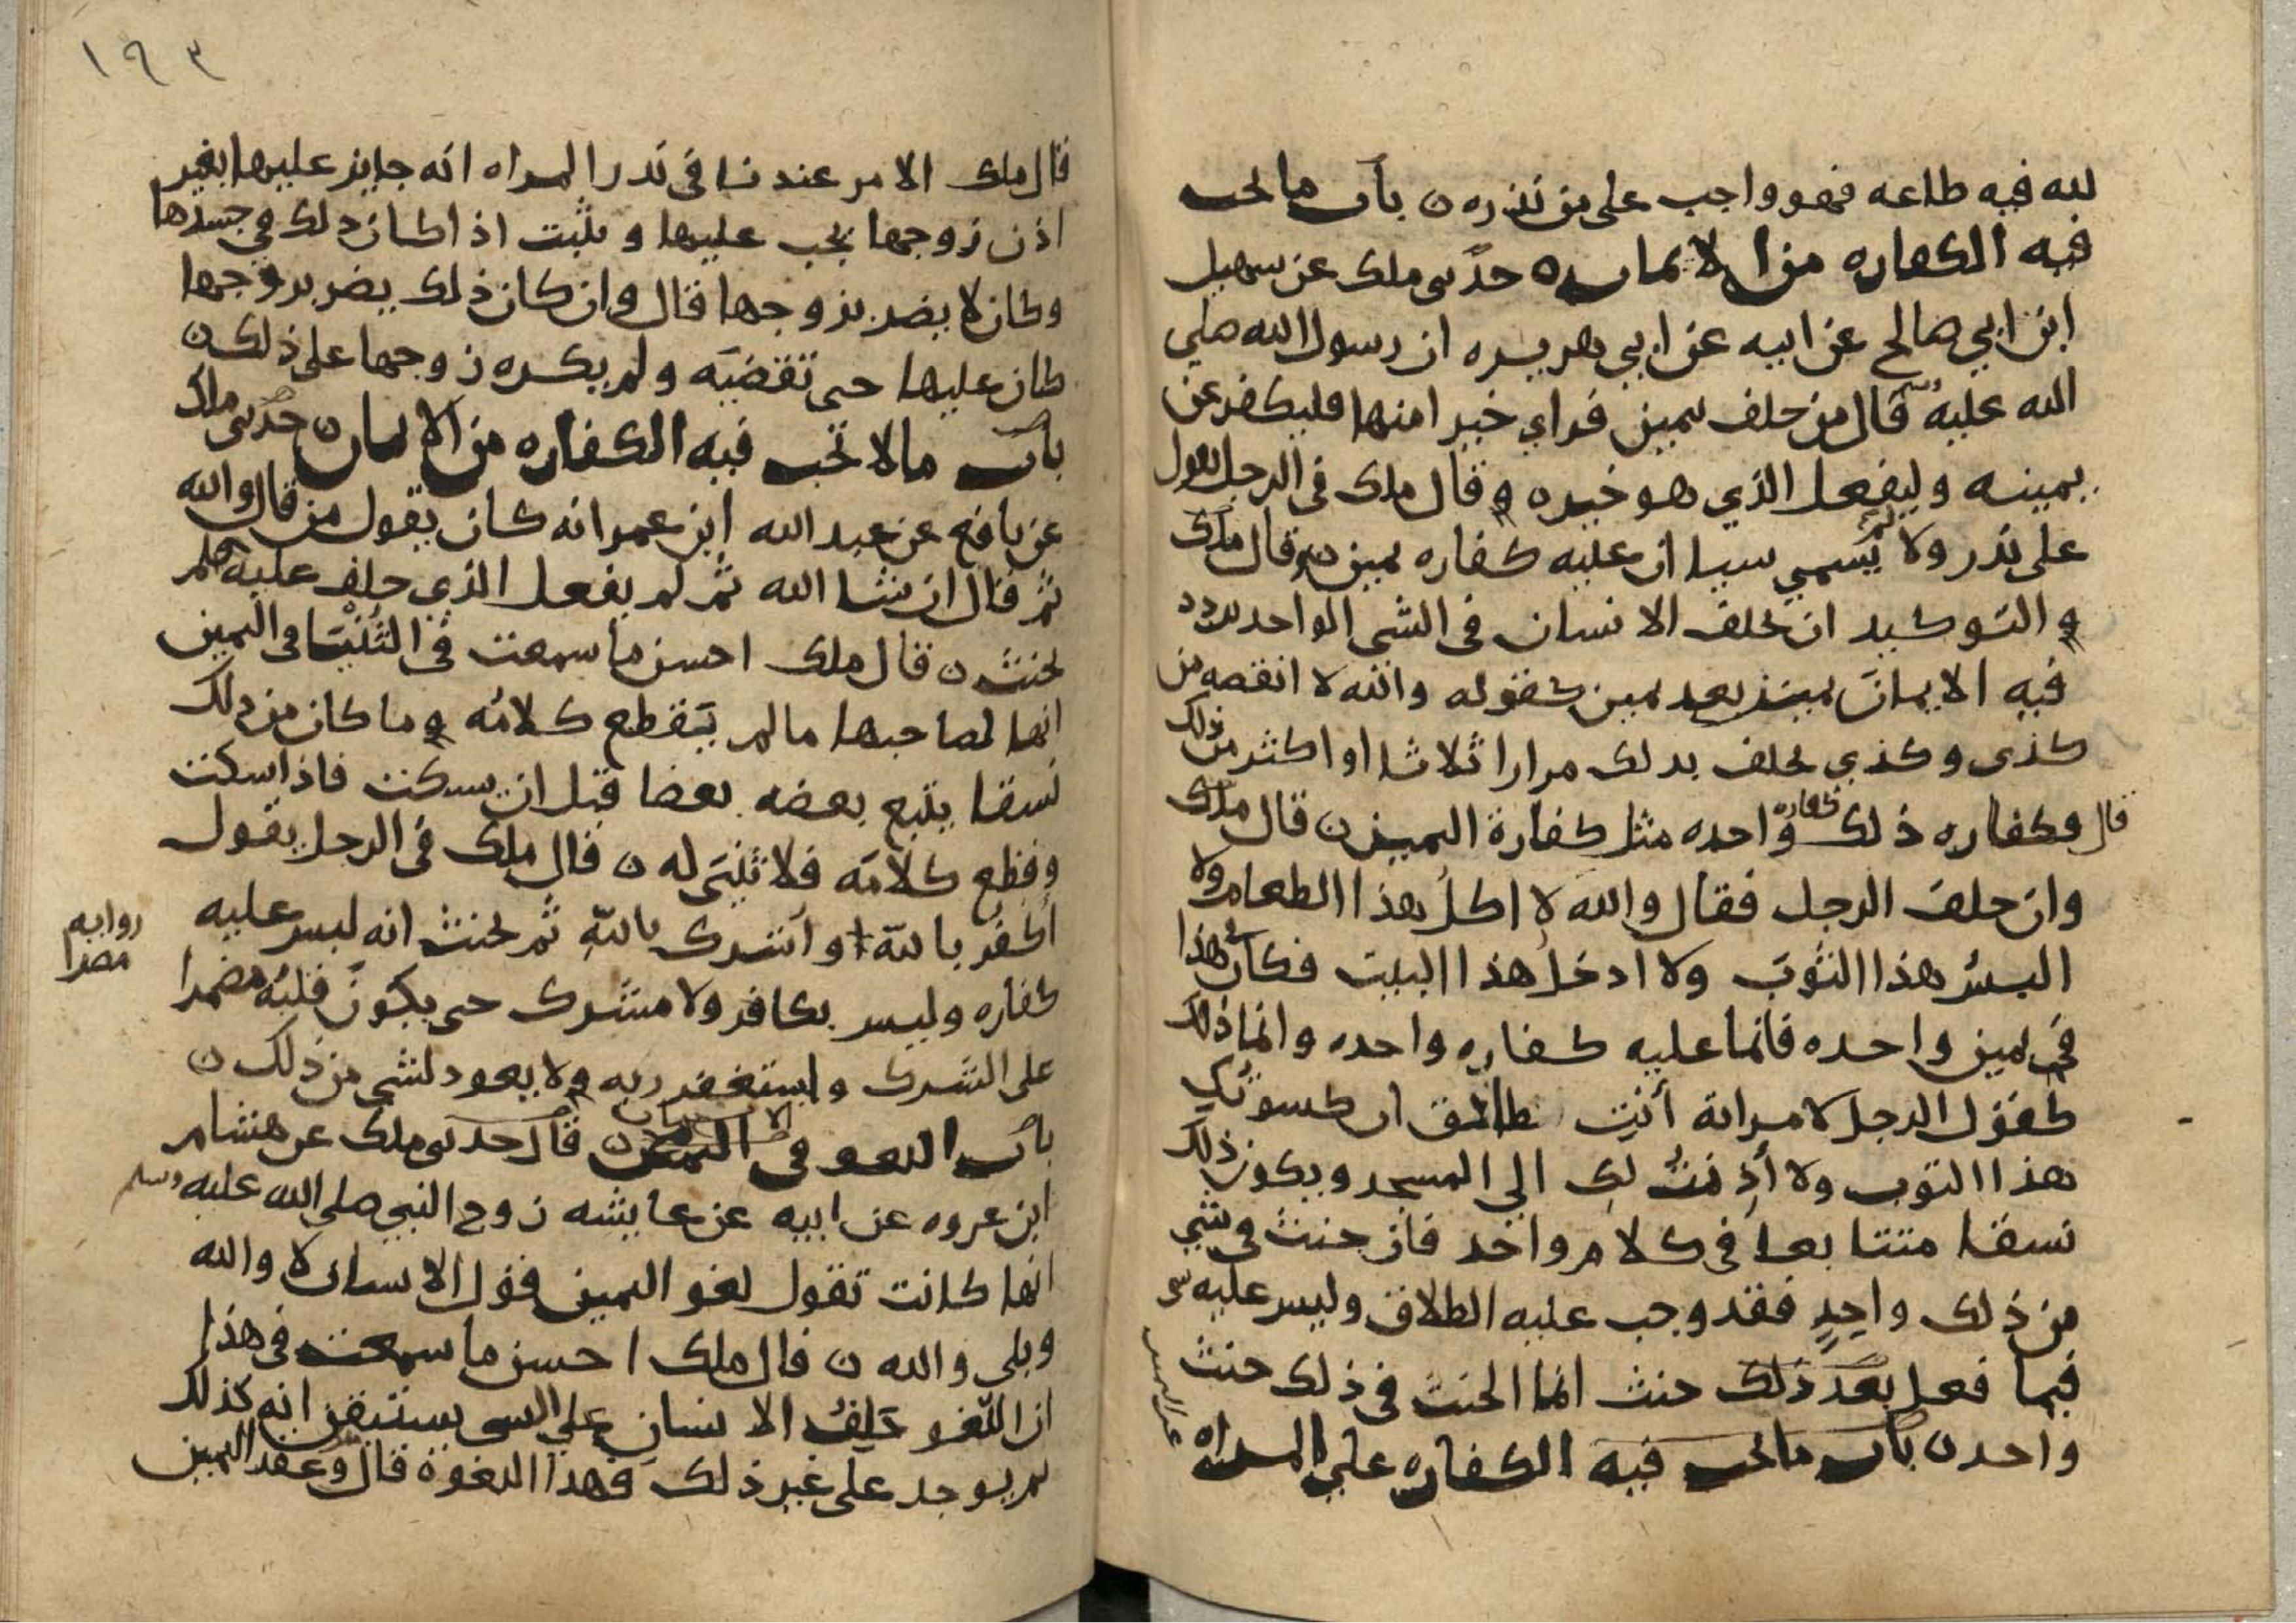 لله فيه طاعه فهو واجب على من نذره ن باب ما تجب
فيه الكفاره من الايمان ه حدثنى ملك عن سهيل
ابن ابي صالح عن ابيه عن ابي هريره ان رسول الله صلي
الله عليه وسلم قال من حلف بيمين فراي خيرا منها فليكفر عن
يمينه وليفعل الذي هو خير ه وقال ملك فى الرجل يقول
على نذر ولا يسمي شيا ان عليه كفاره يمين ن قال ملك
والتوكيد ان يحلف الانسان فى الشى الواحد يردد
فيه الايمان يمينا بعد يمين كقوله والله لا انقصه من
كذى وكذي يحلف بذلك مرارا ثلاثا او اكثر من ذلك
قال وكفاره ذلك كفاره واحده مثل كفارة اليمين ن قال ملك
وان حلف الرجل فقال والله لا اكل هذا الطعام ولا
البس هذا الثوب ولا ادخل هذا البيت فكان هذا
في يمين واحده فانما عليه كفاره واحده وانما ذلك
كقول الرجل لامراته أنت طالق ان كسوتك
هذا الثوب ولا أذنت لك الي المسجد ويكون ذلك
نسقا متتابعا فى كلام واحد فان حنث في شي
من ذلك واحد فقد وجب عليه الطلاق وليس عليه
فيما فعل بعد ذلك حنث انما الحنث فى ذلك حنث
واحد ن باب ما تجب فيه الكفاره علي المراه
١٩٣
قال ملك الامر عندنا فى نذر المراه انه جايز عليها بغير
اذن زوجها يجب عليها ويثبت اذا كان ذلك في جسدها
وكان لا يضر بزوجها قال وان كان ذلك يضر بزوجها
كان عليها حتى تقضيه ولم يكره زوجها على ذلك ن
باب ما لا تجب فيه الكفاره من الايمان ن حدثنى ملك
عن نافع عن عبد الله ابن عمر انه كان يقول من قال والله
ثم قال ان شا الله ثم لم يفعل الذي حلف عليه لم
يحنث ن قال ملك احسن ما سمعت فى الثنيا في اليمين
انها لصاحبها ما لم يقطع كلامه وما كان من ذلك
نسقا يتبع بعضه بعضا قبل ان يسكت فاذا سكت
وقطع كلامه فلا ثنيى له ن قال ملك فى الرجل يقول
أكفر بالله او أشرك بالله ثم يحنث انه ليس عليه
كفاره وليس بكافر ولا مشرك حتى يكون قلبه مضمرا
روايه
مصرا
على الشرك وليستغفر ربه ولا يعود لشى من ذلك ن
باب اللغو في اليمين ن قال حدثنى ملك عن هشام
ابن عروه عن ابيه عن عايشه زوج النبي صلي الله عليه وسلم
انها كانت تقول لغو اليمين قول الانسان لا والله
وبلى والله ن قال ملك احسن ما سمعت في هذا
ان اللغو حلف الانسان علي الشى يستيقن انه كذلك
ثم يوجد على غير ذلك فهذا اللغو ه قال وعقد اليمين